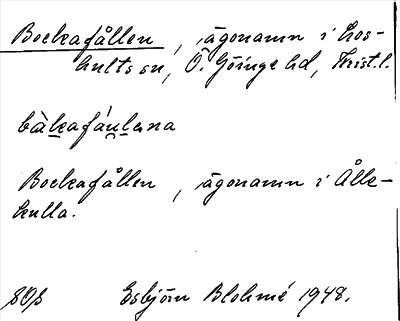 Bockafållen, ägonamn i Los-
hults sn, Ö. Göinge hd, Krist. l.
bàkafáulana
Bockafållen, ägonamn i Ålle-
kulla.
Esbjörn Blohmé 1948.